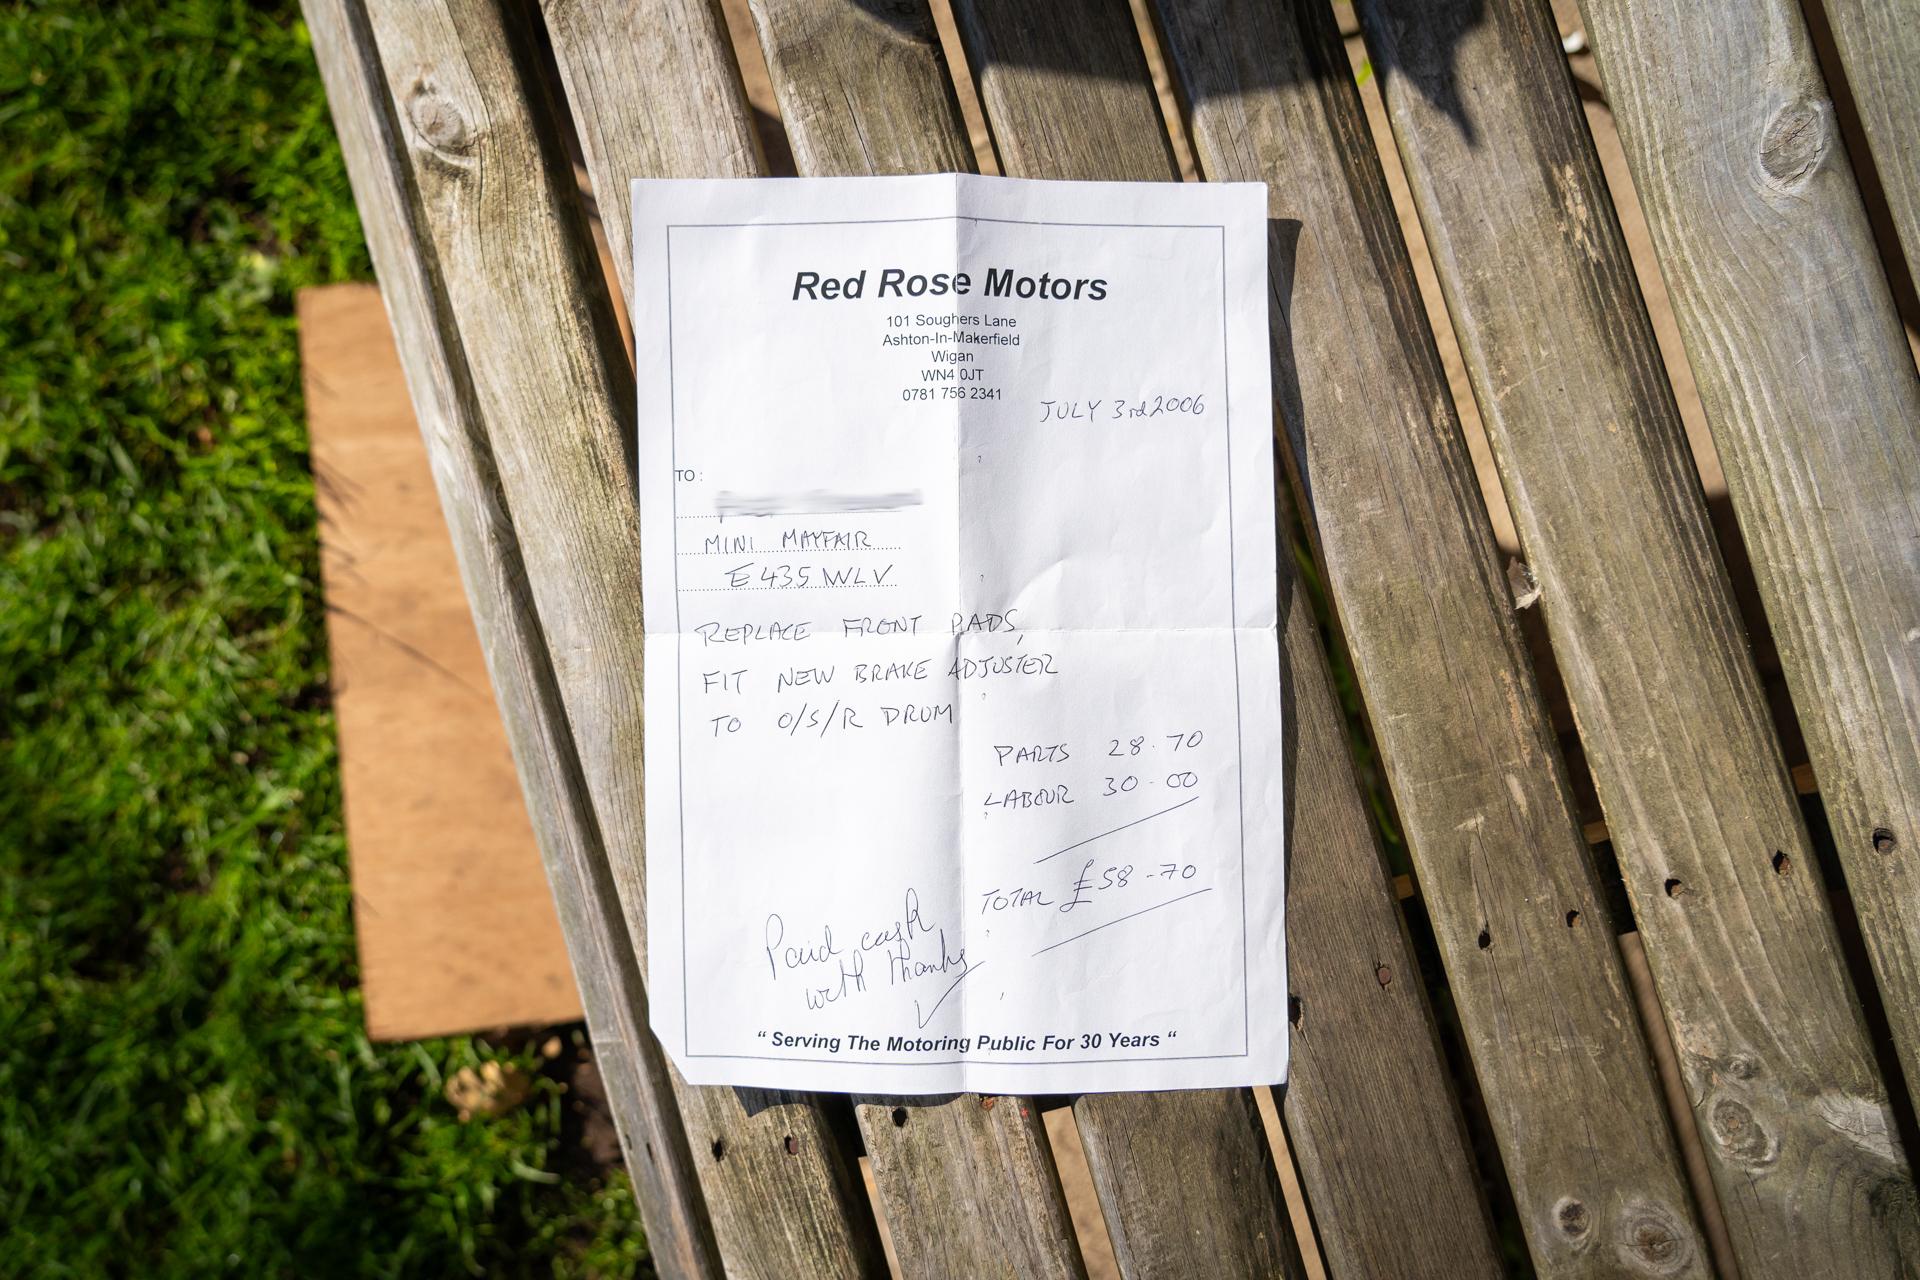 Red Rose Motors
101 Soughers Lane
Ashton-In-Makerfield
Wigan
WN4 0JT
0781 756 2341
JULY 3rd 2006
TO :
MINI MAYFAIR
E435 WLV
REPLACE FRONT PADS,
FIT NEW BRAKE ADJUSTER
TO O/S/R DRUM
PARTS 28.70
LABOUR 30-00
TOTAL £58-70
Paid cash
with thanks
“ Serving The Motoring Public For 30 Years “